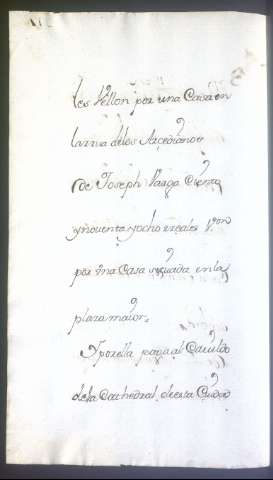 les Vellon por una Casa en
la rua delos Arzedianos
De Joseph Varga Ciento
y noventa y ocho rreales Von
por vna Casa situada en la
plaza maior.
Y por ella paga al Cavildo
de la Cathedral de esta Ciudad